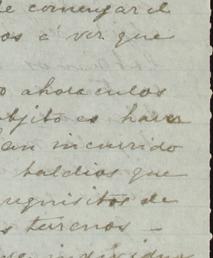 de comenzar el
os á ver que
o ahora en los
objeto es hacer
an incurrido
baldios que
requisitos de
s terrenos —
individuos